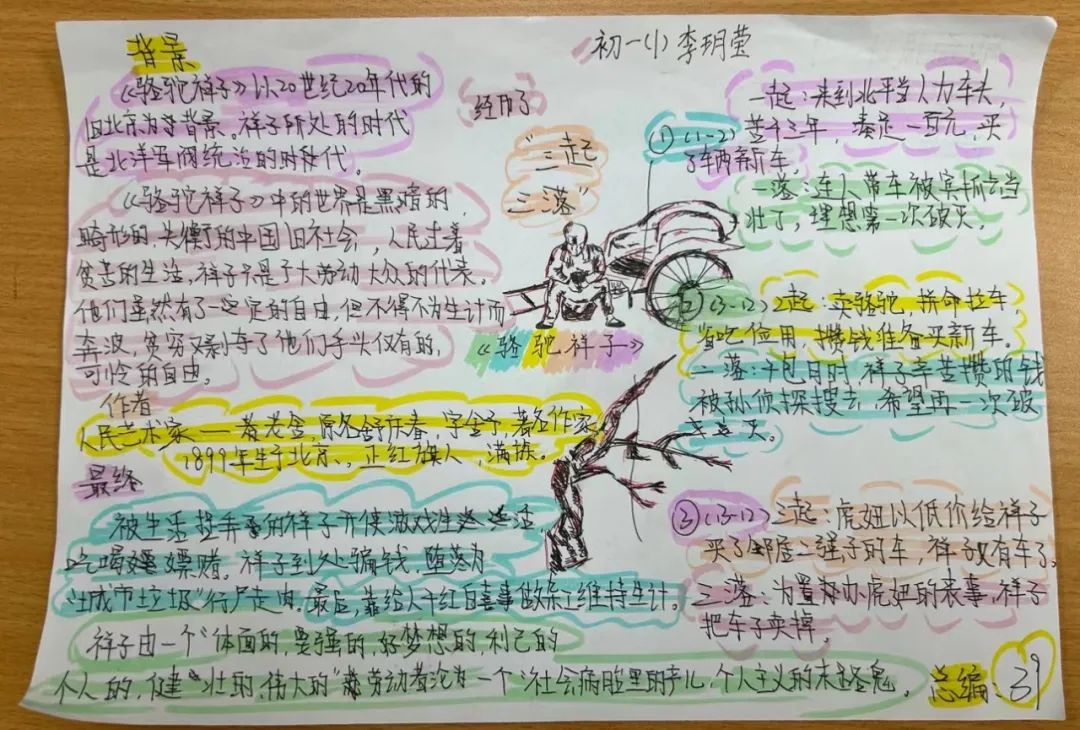 初一(1) 李玥莹
背景
《骆驼祥子》以20世纪20年代的
旧北京为背景。祥子所处的时代
是北洋军阀统治的时代。
《骆驼祥子》中的世界是黑暗的,
畸形的,失衡的中国旧社会,人民过着
贫苦的生活,祥子只是广大劳动大众的代表。
他们虽然有了一定的自由,但不得不为生计而
奔波,贫穷又剥夺了他们手头仅有的,
可怜的自由。
作者
人民艺术家——老舍,原名舒庆春,字舍予,著名作家,
1899年生于北京、正红旗人,满族。
最终
被生活 的祥子开使游戏生活
吃喝嫖赌。祥子到处骗钱,堕落为
“城市垃圾”行尸走肉,最后,靠给人干红白喜事做杂工维持生计。
祥子由一个“体面的,要强的,好梦想的,利己的
个人的,健壮的,伟大的”劳动者沦为一个“社会病胎里的产儿,个人主义的末路鬼。
经历了
“三起
三落”
《骆驼祥子》
一起:来到北平当人力车夫,
①(1-2)苦干三年,凑足一百元,买
了辆新车。
一落:连人带车被宾抓去当
壮丁,理想第一次破灭。
②(3-12)2起:卖骆驼,拼命拉车,
省吃俭用,攒钱准备买新车。
二落:干包月时,祥子辛苦攒的钱
被孙侦探搜去,希望再一次破
灭。
③(13-12)三起:虎妞以低价给祥子
买了邻居二强子的车,祥子又有车了。
三落:为置办虎妞的丧事,祥子
把车子卖掉。
总编:39